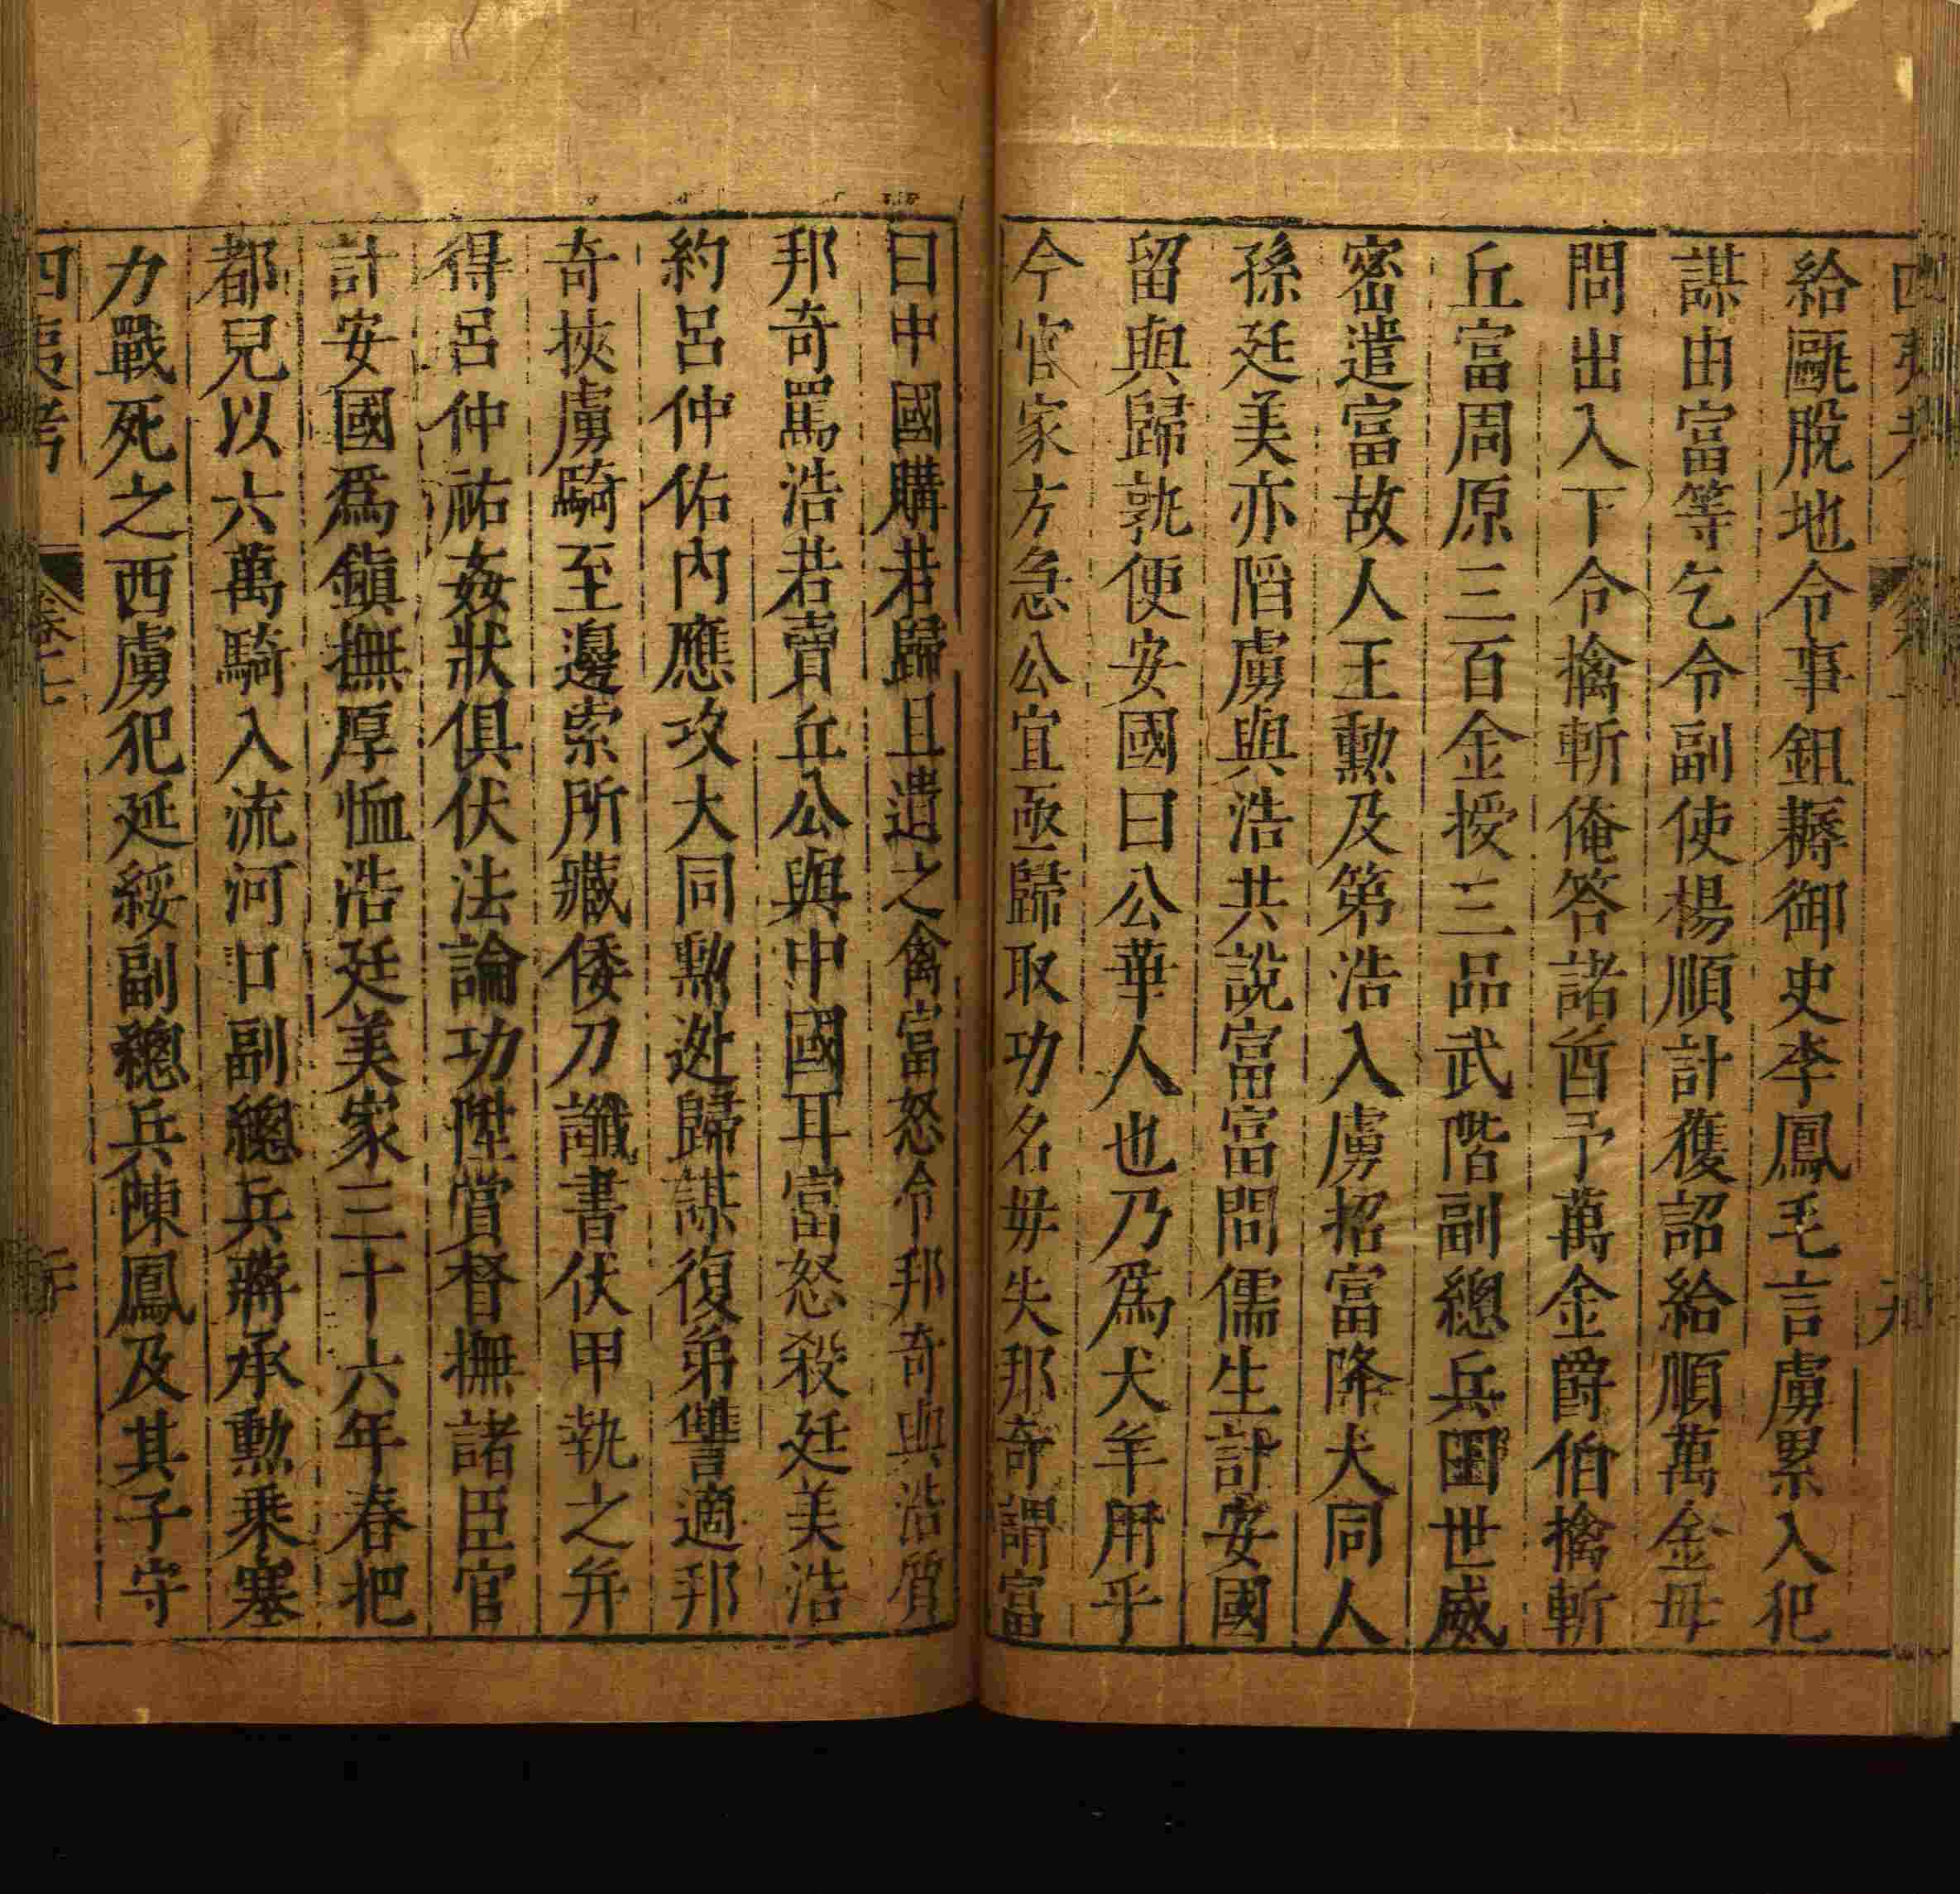 給甌脫地令事鉏耨御史李鳳毛言虜累入犯
謀由富等乞令副使楊順計獲詔給順萬金毋
問出入下令擒斬俺答諸酋予萬金爵伯擒斬
丘富周原三百金授三品武階副總兵田世威
密遣富故人王勲及第浩入虜招富降大同人
孫廷美亦䧟虜與浩共說富富問儒生計安國
留與歸孰便安國曰公華人也乃爲犬羊用乎
今官家方急公宜亟歸取功名毋失邦奇謂富
曰中國購若歸且遣之禽富怒令邦奇與浩質
邦奇罵浩若賣丘公與中國耳富怒殺廷美浩
約呂仲佑內應攻大同勲逃歸謀復弟讐適邦
奇挾虜騎至邊索所藏倭刀讖書伏甲執之并
得呂仲祐姦狀俱伏法論功陞賞督撫諸臣官
計安國爲鎭撫厚恤浩廷美家三十六年春把
都兒以六萬騎入流河口副總兵蔣承勲乗塞
力戰死之西虜犯延綏副總兵陳鳳及其子守
四夷考
卷之七